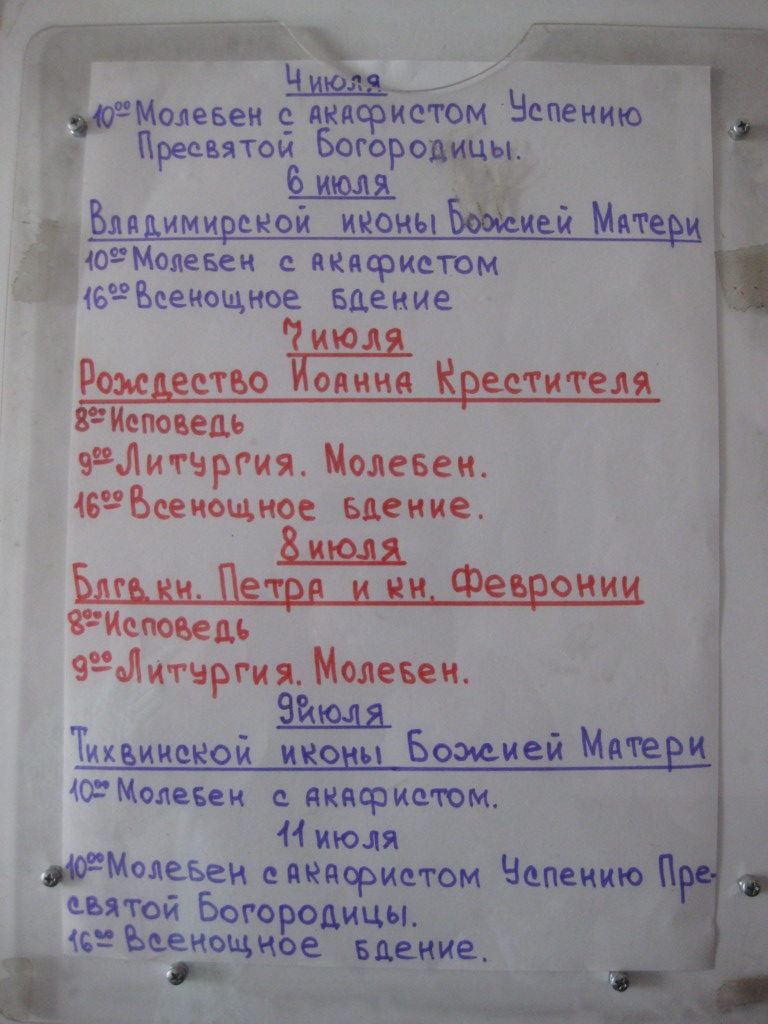 4 июля
10⁰⁰ Молебен с акафистом Успению
Пресвятой Богородицы.
6 июля
Владимирской иконы Божией Матери
10⁰⁰ Молебен с акафистом
16⁰⁰ Всенощное бдение
7 июля
Рождество Иоанна Крестителя
8⁰⁰ Исповедь
9⁰⁰ Литургия. Молебен.
16⁰⁰ Всенощное бдение.
8 июля
Блгв. кн. Петра и кн. Февронии
8⁰⁰ Исповедь
9⁰⁰ Литургия. Молебен.
9 июля
Тихвинской иконы Божией Матери
10⁰⁰ Молебен с акафистом.
11 июля
10⁰⁰ Молебен с акафистом Успению Пре-
святой Богородицы.
16⁰⁰ Всенощное бдение.